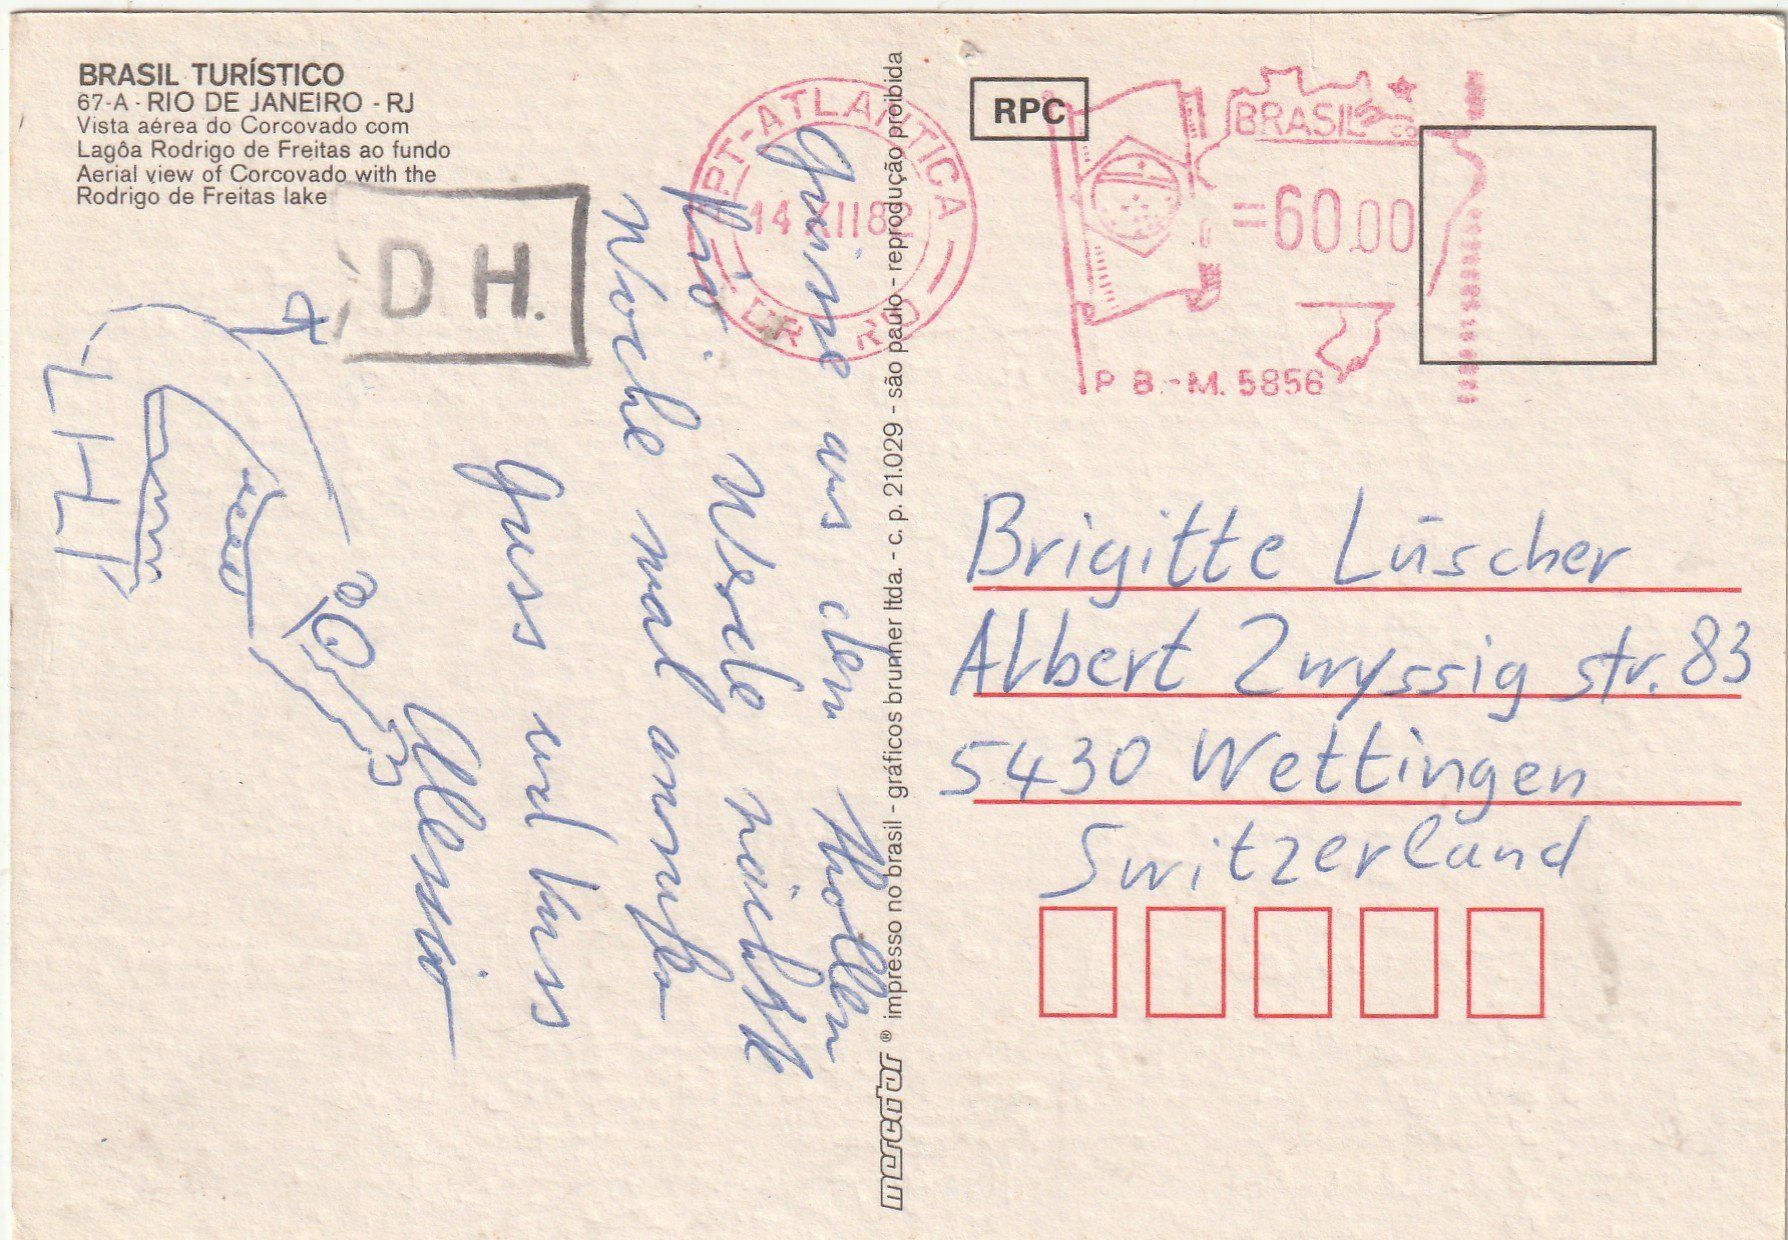 BRASIL TURÍSTICO
67-A - RIO DE JANEIRO - RJ
Vista aérea do Corcovado com
Lagôa Rodrigo de Freitas ao fundo
Aerial view of Corcovado with the
Rodrigo de Freitas lake
D.H.
Grüsse aus dem tollen
Rio. Werde nächste
Woche mal anrufen
Gruss und Kuss
Alessio
mercator ® impresso no brasil - gráficos brunner ltda. - c. p. 21.029 - são paulo - reprodução proibida
PT-ATLANTICA
14 XII 82
DR - RIO
RPC
BRASIL
=60.00
P B.-M. 5856
Brigitte Lüscher
Albert Zwyssig str. 83
5430 Wettingen
Switzerland